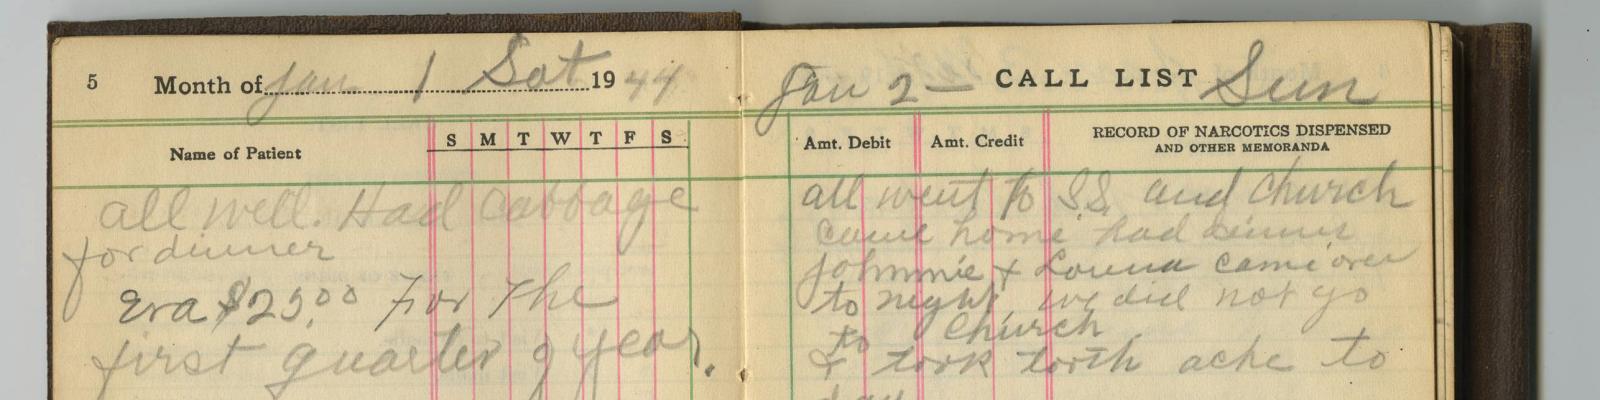 5 Month of Jan 1 Sat 19 44
Name of Patient S M T W T F S
all well. Had cabbage
for dinner
Era $25.00 For The
first quarter of year.
Jan 2 — CALL LIST Sun
Amt. Debit Amt. Credit RECORD OF NARCOTICS DISPENSED
AND OTHER MEMORANDA
all went to S.S. and church
came home had dinner
Johnnie & Louna came over
to night we did not go
to Church
& took tooth ache to
day